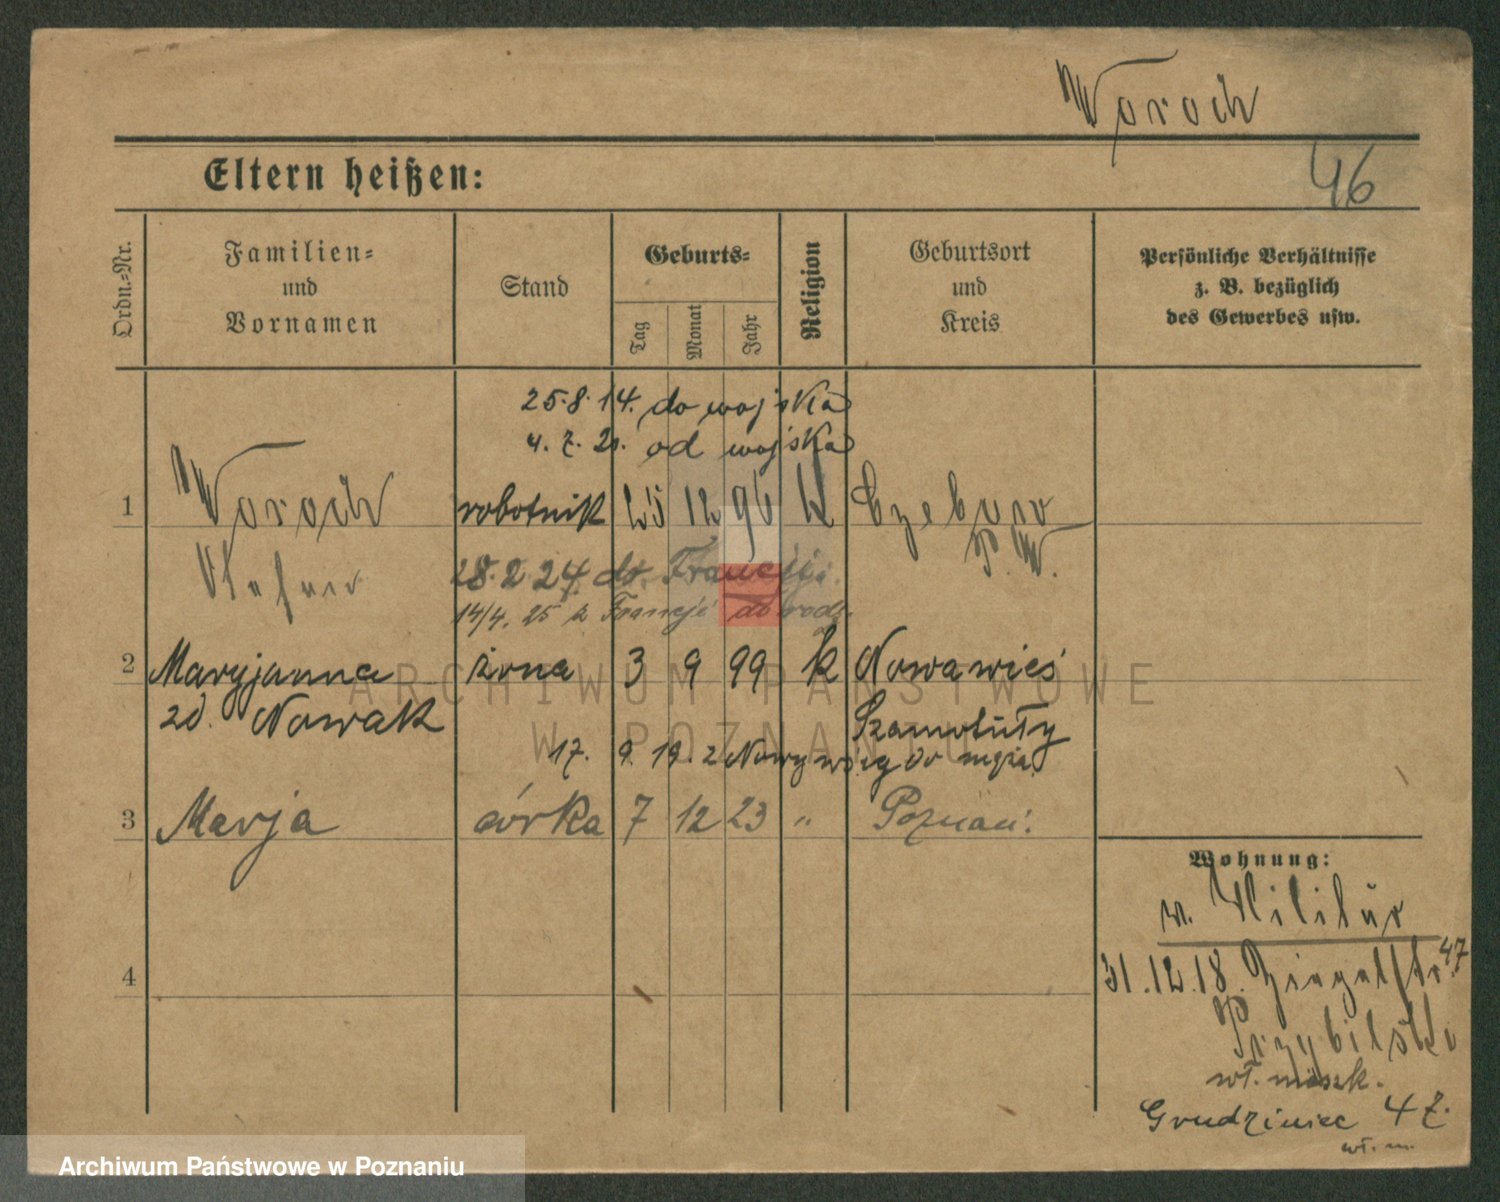 Woroch
Eltern heißen:
46
Ordn.-Nr.
Familien-
und
Vornamen
Stand
Geburts-
Tag
Monat
Jahr
Religion
Geburtsort
und
Kreis
Persönliche Verhältnisse
z. B. bezüglich
des Gewerbes usw.
25.8.14. do wojska
4. 7. 21. od wojska
1 Woroch robotnik 25 12 96 k
28.2 24. do Francji
14/4. 25 z Francji do rodz.
2 Maryjanna żona 3 9 99 k Nowawieś
zd. Nowak Szamotuły
17. 9. 19. z Nowy wsi do męża
3 Marja córka 7 12 23 " Poznań.
4
Wohnung:
v. Militär
31.12.18. Ziegelstr. 47
Przybilski
wł. mieszk.
Grudziniec 47.
wł. m.
ARCHIWUM PAŃSTWOWE
W POZNANIU
Archiwum Państwowe w Poznaniu